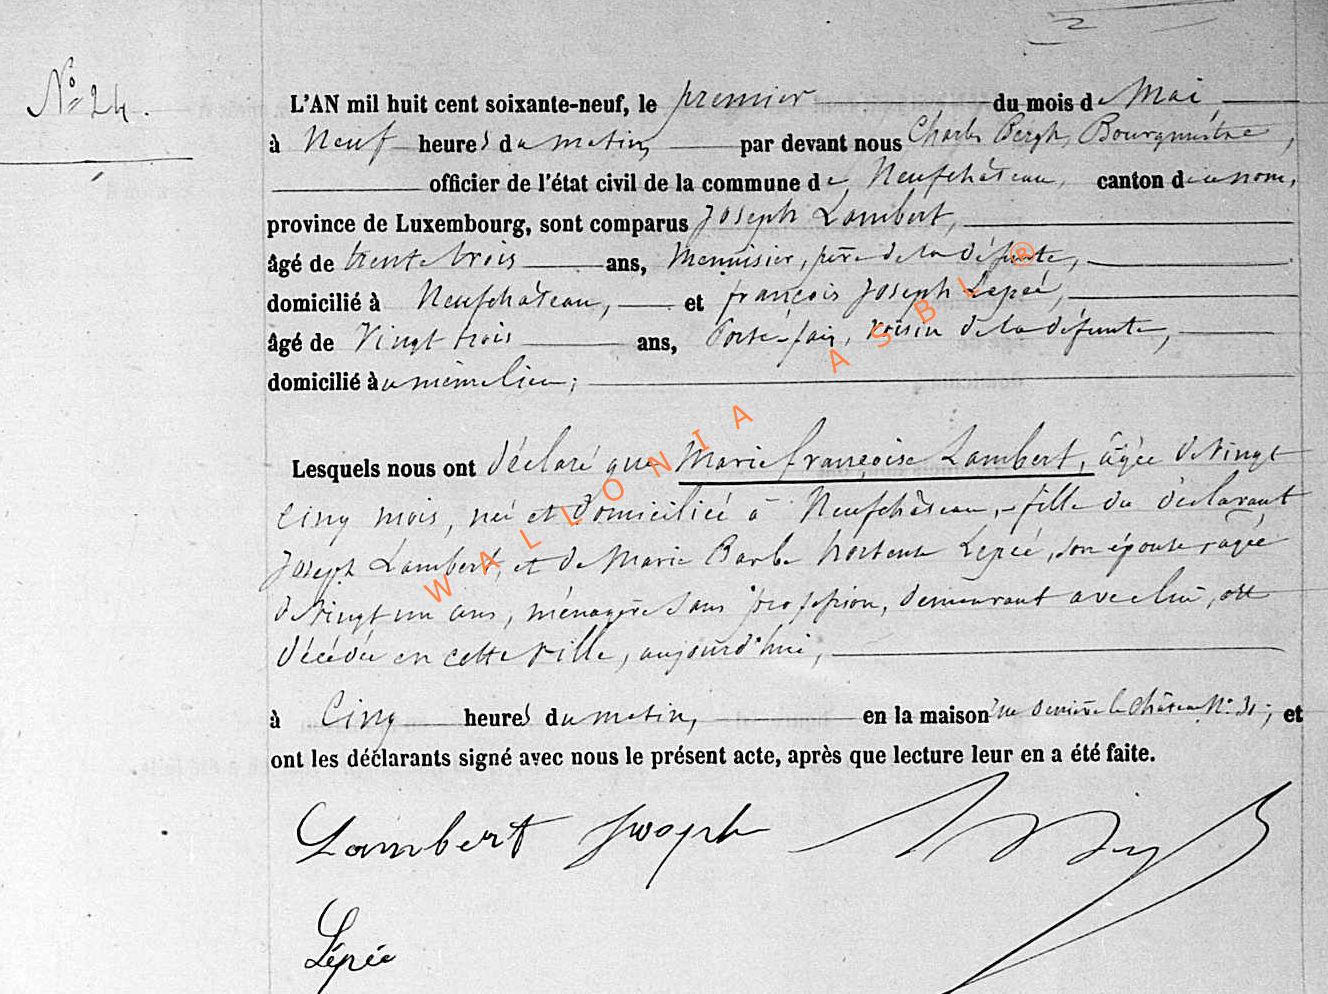 N° 24.
L'AN mil huit cent soixante-neuf, le premier du mois de Mai,
à Neuf heures du matin, par devant nous Charles Bergh, Bourgmestre,
officier de l'état civil de la commune de Neufchâteau, canton du nom,
province de Luxembourg, sont comparus Joseph Lambert,
âgé de trente trois ans, Menuisier, père de la défunte,
domicilié à Neufchâteau, et françois Joseph Lepée,
âgé de Vingt trois ans, Porte-faix, voisin de la défunte,
domicilié au même lieu;
Lesquels nous ont déclaré que Marie françoise Lambert, âgée de Vingt
Cinq mois, née et domiciliée à Neufchâteau, fille du déclarant
Joseph Lambert, et de Marie Barbe hortense Lepée, son épouse, agée
de Vingt un ans, ménagère sans profession, demeurant avec lui, est
décédée en cette ville, aujourd'hui,
à Cinq heures du matin, en la maison rue derrière le Château N° 31; et
ont les déclarants signé avec nous le présent acte, après que lecture leur en a été faite.
Lambert Joseph
Lépée
WALLONIA ASBL ®